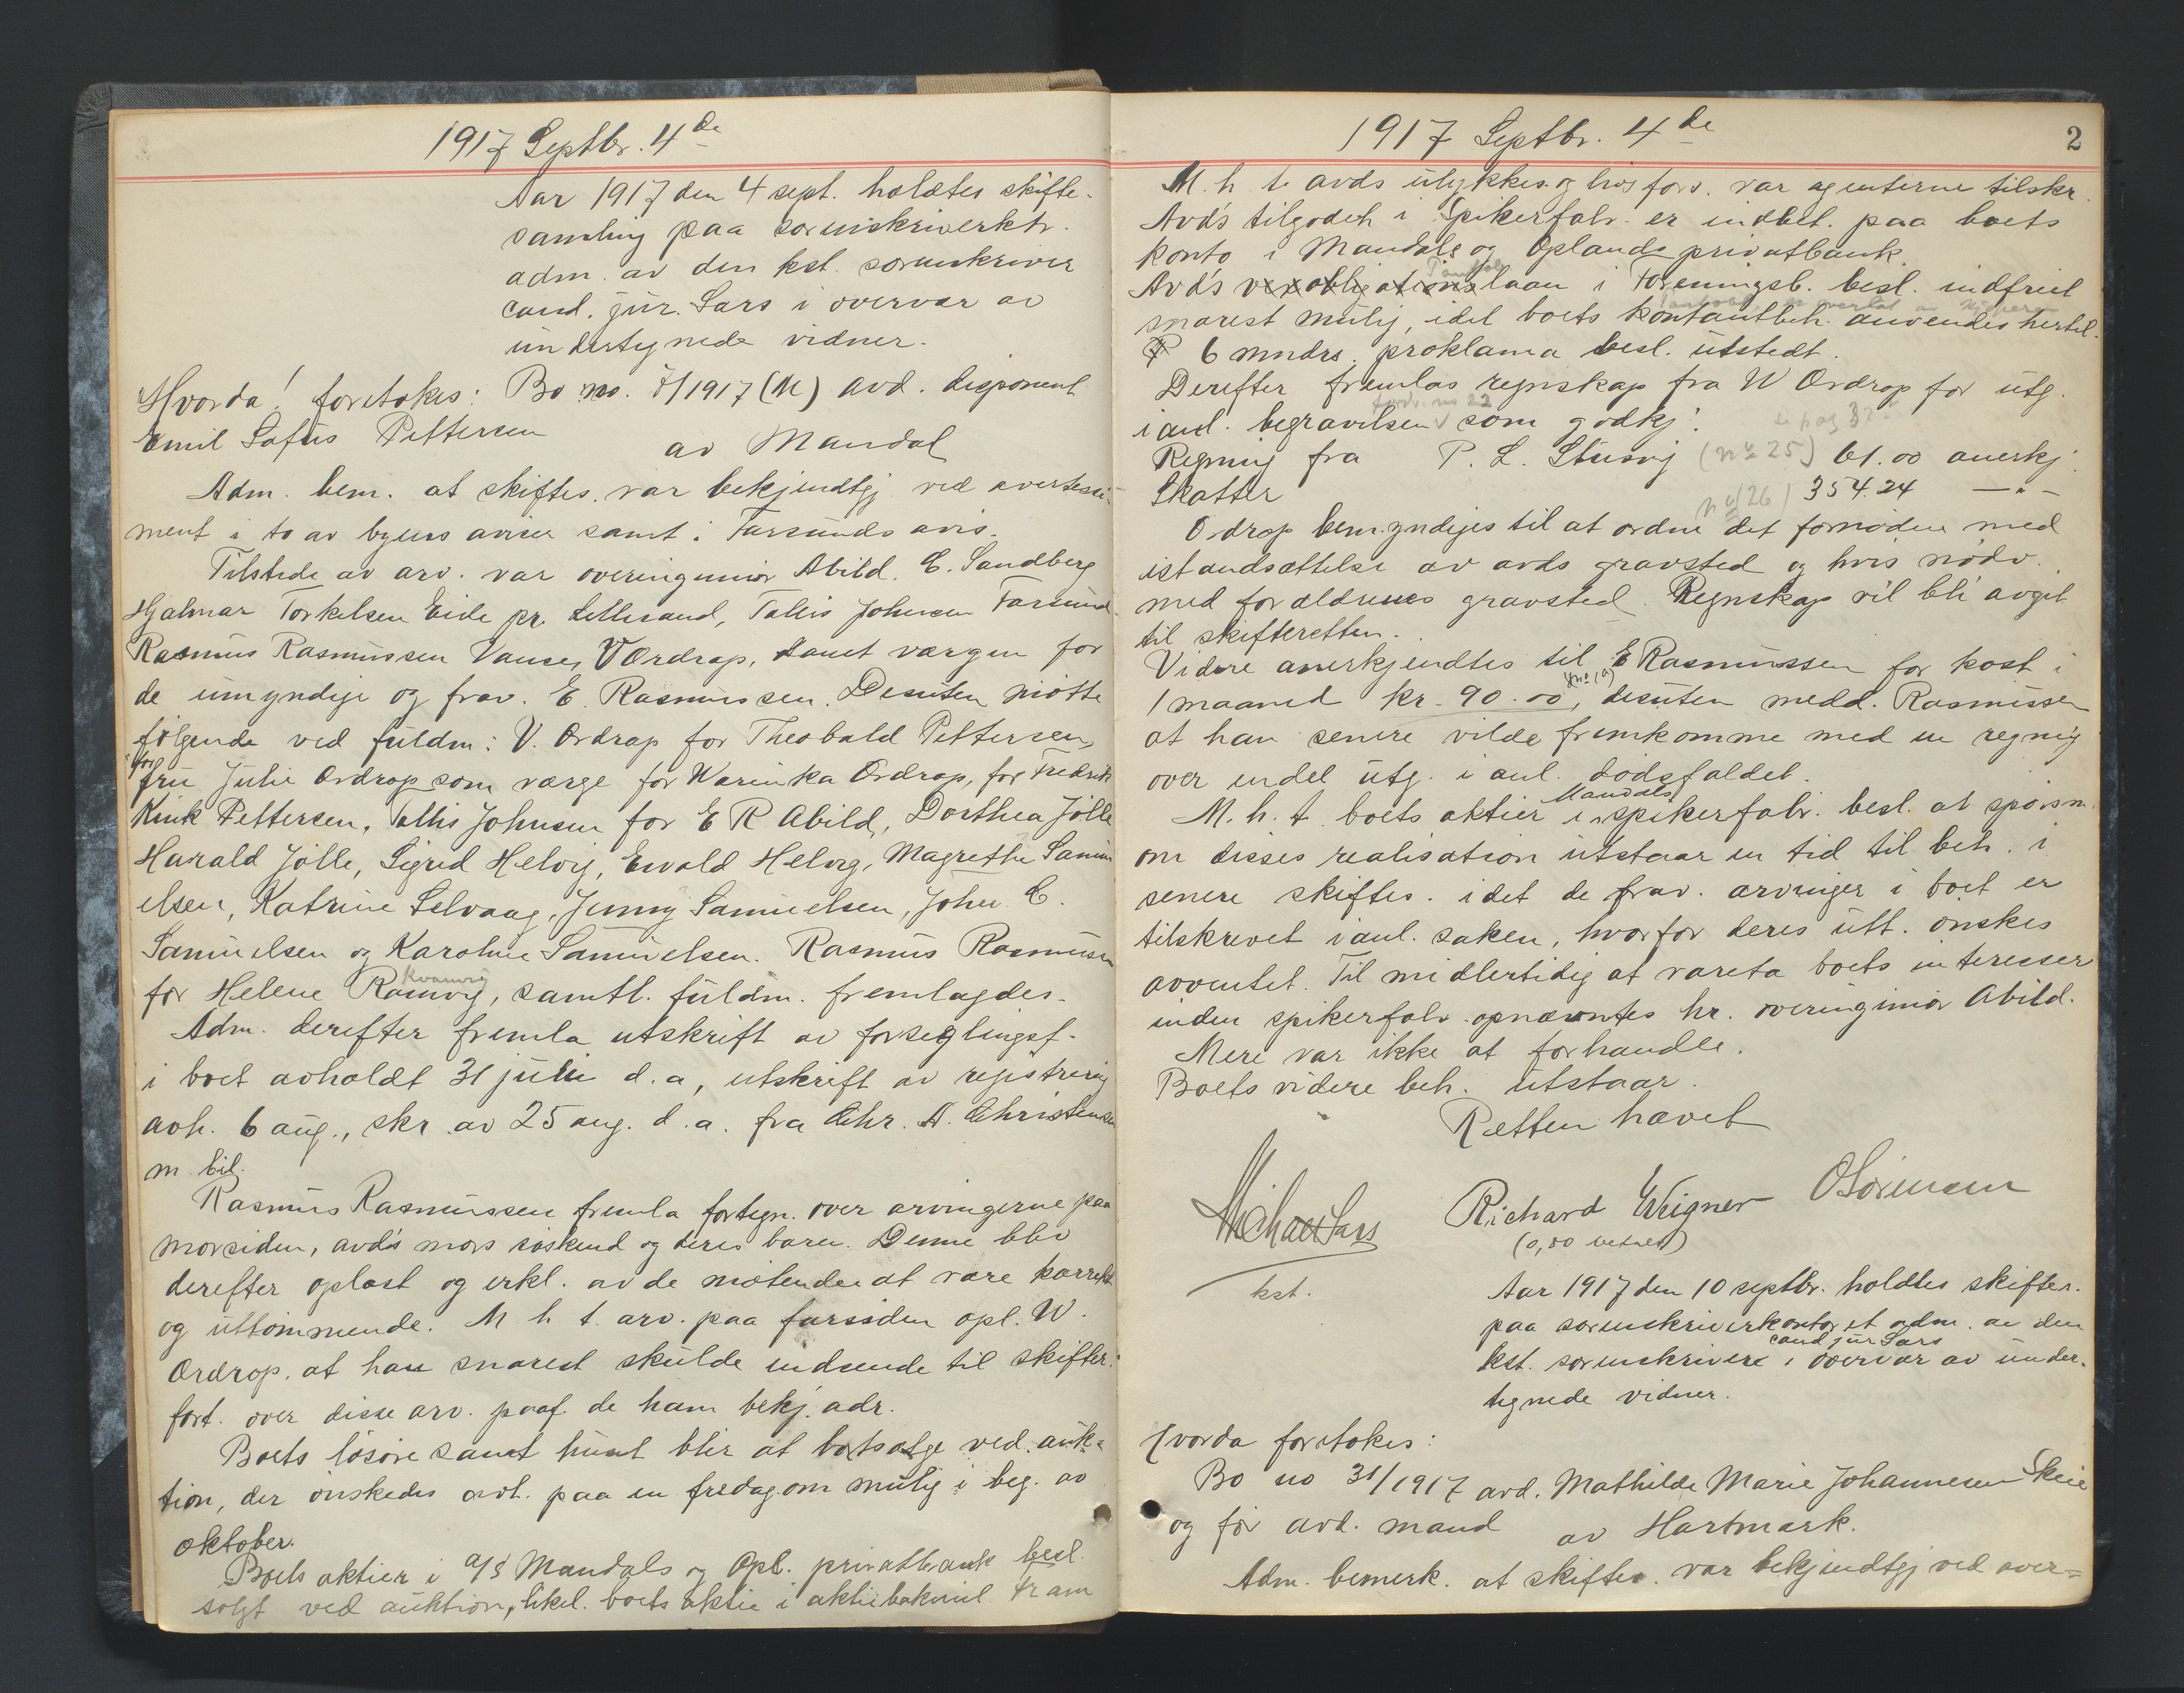 1917 Septbr. 4de
Aar 1917 den 4 sept. holdtes skifte-
samling paa sorenskriverktr.
adm. av den kst. sorenskriver
cand. jur. Sars i overvær av
undertegnede vidner.
Hvorda! foretokes: Bo no. 7/1917 (M) avd. disponent
Emil Sofus Pettersen
av Mandal
Adm. bem. at skiftes. var bekjendtgj ved avertesse-
ment i to av byens aviser samt i Farsunds avis.
Tilstede av arv. var overingeniør Abild, E. Sandberg
Hjalmar Torkelsen Eide pr. Lillesand, Tallis Johnsen Farsund
Rasmus Rasmussen Vanse, V Ordrop, samt værgen for
de umyndige og frav. E. Rasmussen. Desuten møtte
følgende ved fuldm: V. Ordrop for Theobald Pettersen,
for
fru Julie Ordrop som værge for Warinka Ordrop, for Fredrik
Kink Pettersen, Tallis Johnsen for E R Abild, Dorthea Jølle
Harald Jølle, Sigrid Helvig, Ewald Helvig, Magrethe Samu
elsen, Katrine Selvaag, Jenny Samuelsen, John C.
Samuelsen og Karoline Samuelsen. Rasmus Rasmussen
Kvamvig
for Helene Ramvig, samtl. fuldm. fremlagdes.
Adm. derefter fremla utskrift av forseglingsf.
i boet avholdt 31 juli d.a, utskrift av registrering
avh. 6 aug., skr av 25 aug. d.a. fra Chr. A. Christensen
m bil.
Rasmus Rasmussen fremla fortegn. over arvingerne paa
morsiden, avd's mors søskend og deres barn. Denne blev
derefter oplæst og erkl. av de møtende at være korrekt
og uttømmende. M h t. arv. paa farssiden opl. W.
Ordrop. at han snarest skulde indsende til skifter.
fort. over disse arv. paaf. de ham bekj. adr.
Boets løsøre samt huset blir at bortsælge ved auk=
tion, der ønskedes avh. paa en fredag om mulig i beg. av
oktober.
Boets aktier i A/S Mandals og Opl. privatbank besl.
solgt ved auktion, likel. boets aktie i aktiebakeriet Fram
1917 Septbr. 4de
2
M. h. t. avds ulykkes og livsfors. var agenterne tilskr.
Avd's tilgodeh i Spikerfabr. er indbet. paa boets
konto i Mandals og Oplands privatbank.
Avd's vexelobligationslaan i Foreningsb. besl. indfriet
snarest mulig, idet boets kontantbeh. anvendes hertil.
6 mndrs. proklama besl. utstedt.
Derefter fremlas regnskap fra W Ordrop for utg.
fordr. no 22
i anl. begravelsen som godkj.
Regning fra P. L. Stusvig (no 25) 61.00 anerkj.
Skatter no 26) 354.24 —"—
Ordrop bemyndiges til at ordne det fornødne med
istandsættelse av avds gravsted og hvis nødv.
med forældrenes gravsted. Regnskap vil bli avgit
til skifteretten.
Videre anerkjendtes til E Rasmussen for kost i
1 maaned kr. 90.00, desuten medd. Rasmussen
at han senere vilde fremkomme med en regning
over endel utg. i anl. dødsfaldet.
Mandals
M. h. t. boets aktier i spikerfabr. besl. at spørsm.
om disses realisation utstaar en tid til beh. i
senere skiftes. idet de frav. arvinger i boet er
tilskrevet i anl. saken, hvorfor deres utt. ønskes
avventet. Til midlertidig at vareta boets interesser
inden spikerfabr. opnævntes hr. overingeniør Abild.
Mere var ikke at forhandle.
Boets videre beh. utstaar.
Retten hævet
Michael Sars Richard Weigner O Sørensen
(0,80 betalt)
kst.
Aar 1917 den 10 septbr. holdtes skifter.
paa sorenskriverkontoret adm. av den
cand jur Sars
kst. sorenskriver i overvær av under-
tegnede vidner.
Hvorda foretokes:
Bo no 31/1917 avd. Mathilde Marie Johannesen Skeie
og før avd. mand av Hartmark.
Adm. bemerk. at skiftes. var bekjendtgj ved aver=